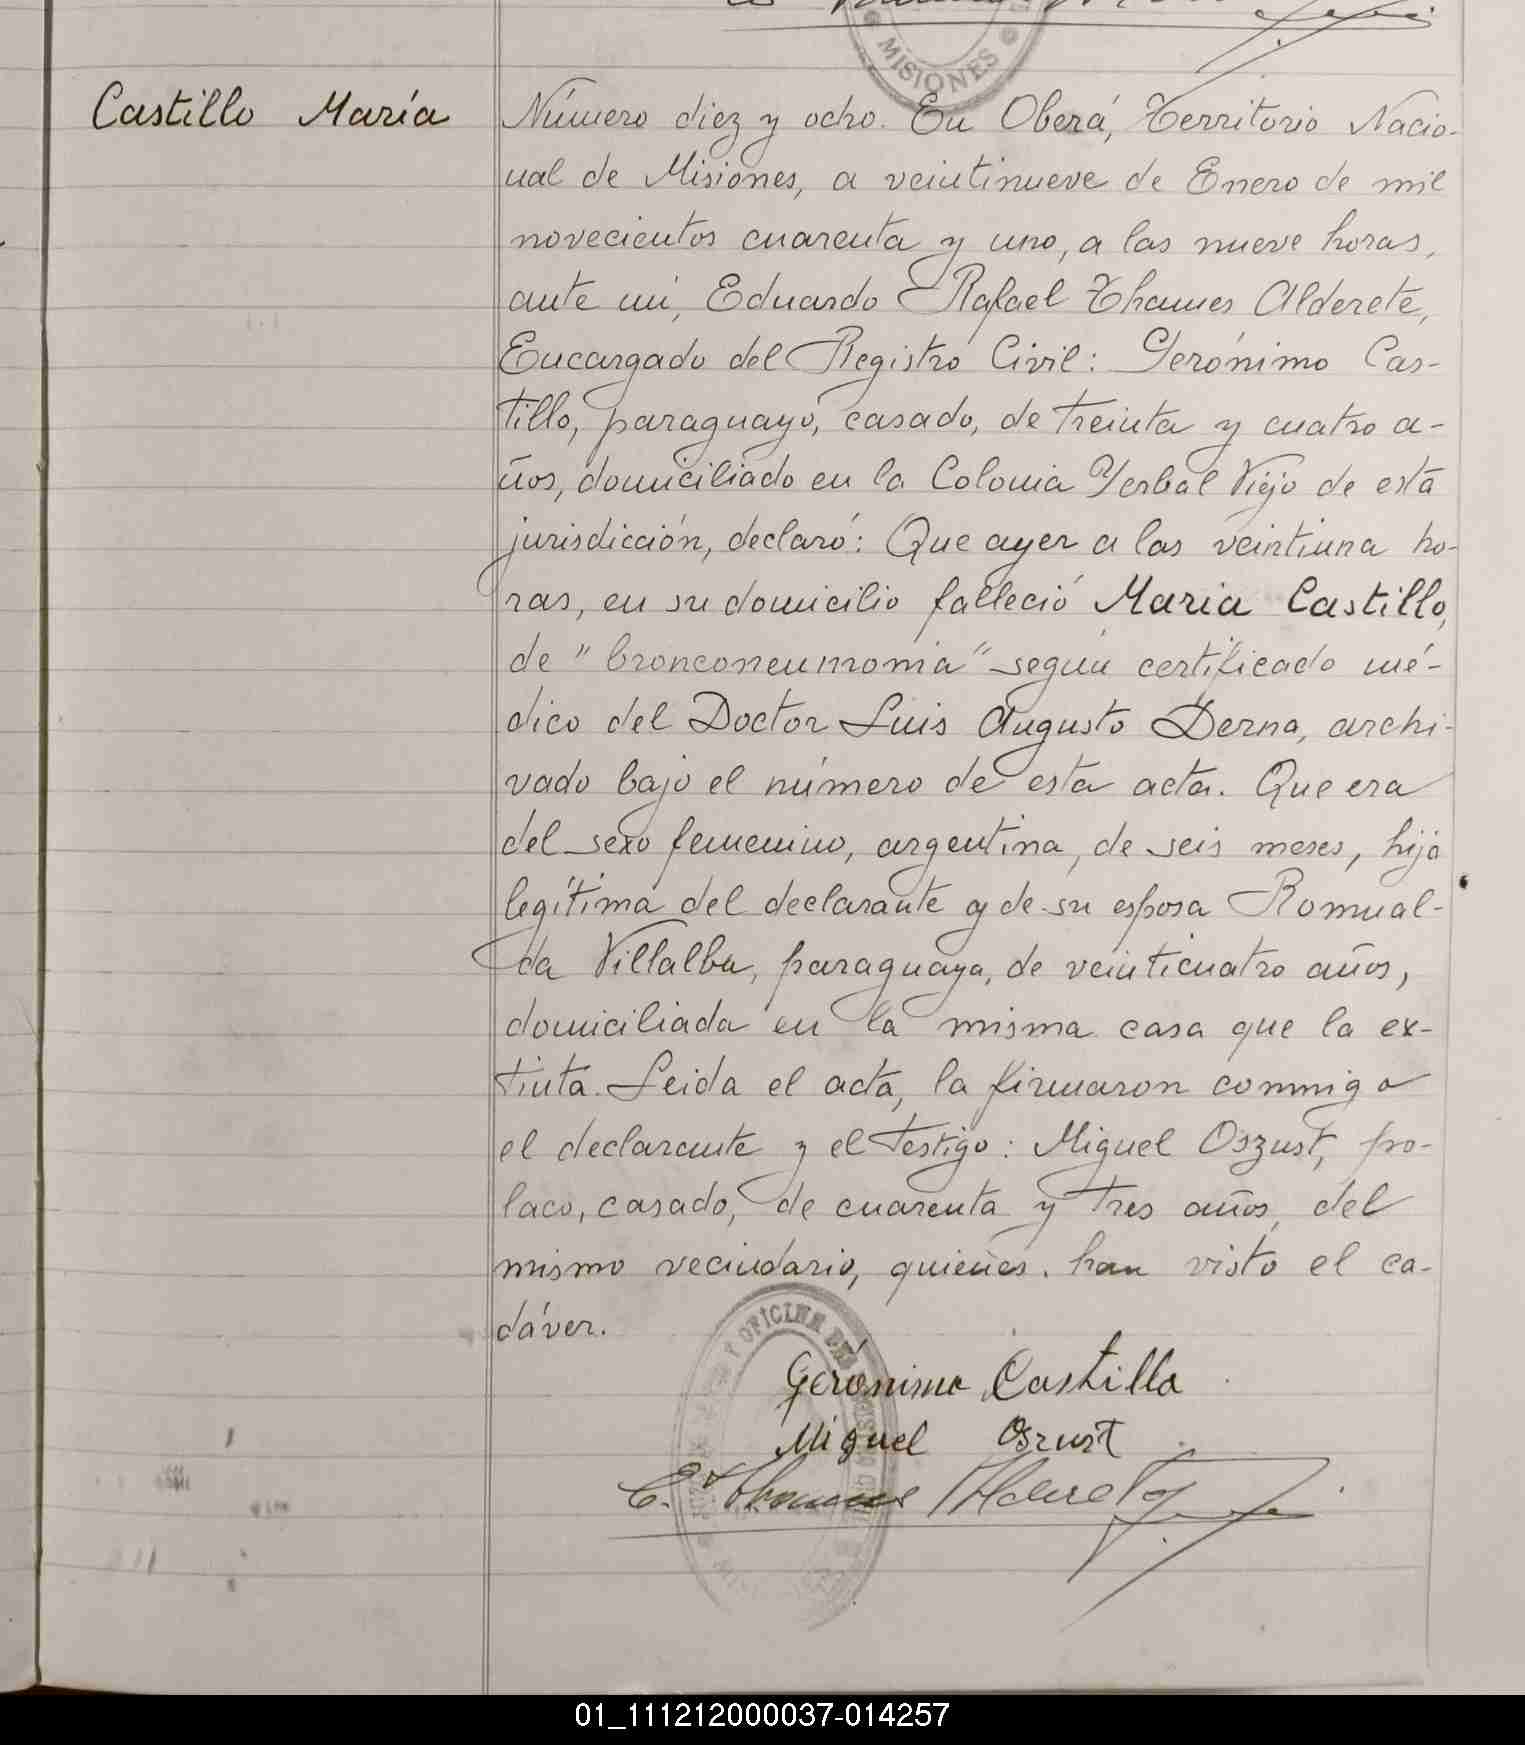 MISIONES
Castillo María
Número diez y ocho. En Oberá, Territorio Nacio-
nal de Misiones, a veintinueve de Enero de mil
novecientos cuarenta y uno, a las nueve horas,
ante mí, Eduardo Rafael Thames Alderete,
Encargado del Registro Civil: Gerónimo Cas-
tillo, paraguayo, casado, de treinta y cuatro a-
ños, domiciliado en la Colonia Yerbal Viejo de esta
jurisdicción, declaró: Que ayer a las veintiuna ho-
ras, en su domicilio falleció Maria Castillo,
de "bronconeumonia" según certificado mé-
dico del Doctor Luis Augusto Derna, archi-
vado bajo el número de esta acta. Que era
del sexo femenino, argentina, de seis meses, hija
legítima del declarante y de su esposa Romual-
da Villalba, paraguaya, de veinticuatro años,
domiciliada en la misma casa que la ex-
tinta. Leida el acta, la firmaron conmigo
el declarante y el testigo: Miguel Oszust, po-
laco, casado, de cuarenta y tres años, del
mismo vecindario, quienes han visto el ca-
dáver.
Y OFICINA DEL
Gerónimo Castillo
Miguel Oszust
E. Thames Alderete
01_111212000037-014257